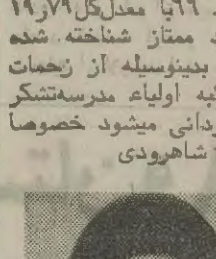 ۶۶با معدل‌کل ۱۹ر۷۹
ممتاز شناخته شده
بدینوسیله از زحمات
کلیه اولیاء مدرسه‌تشکر
دانی میشود خصوصا
شاهرودی